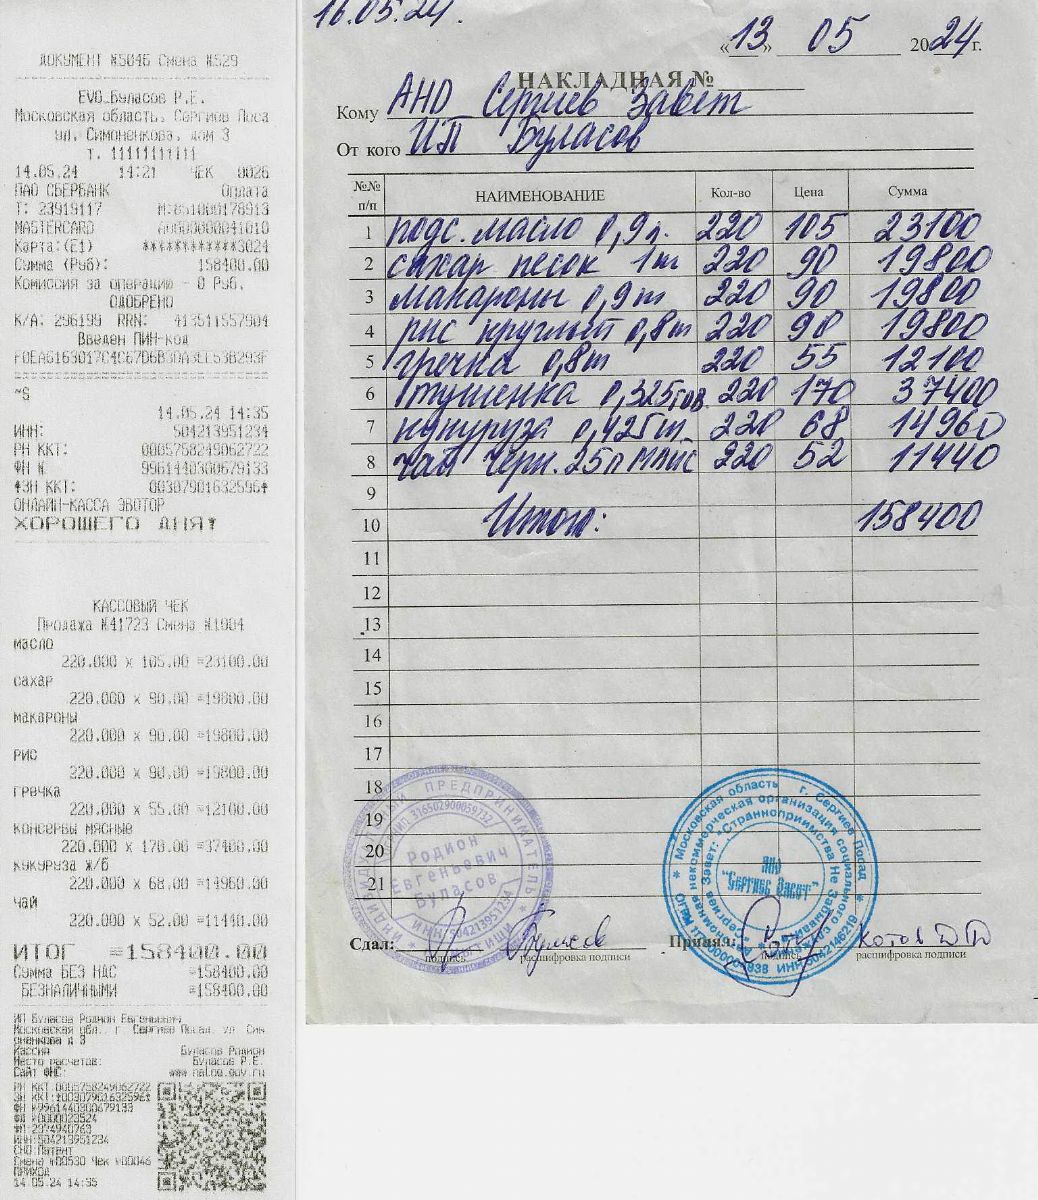 ДОКУМЕНТ №5046 Смена №529
EVO_Буласов Р.Е.
Московская область, Сергиев Поса
ул. Симоненкова, дом 3
т. 11111111111
14.05.24 14:21 ЧЕК 0026
ПАО СБЕРБАНК Оплата
Т: 23919117 М:851000178913
MASTERCARD A0000000041010
Карта:(Е1) ************3024
Сумма (Руб): 158400.00
Комиссия за операцию - 0 Руб.
ОДОБРЕНО
К/А: 296199 RRN: 413511557904
Введен ПИН-код
~S
14.05.24 14:35
ИНН: 504213951234
РН ККТ: 0005758249062722
ФН № 9961440300679133
ЗН ККТ: 00307901632596
ОНЛАЙН-КАССА ЭВОТОР
ХОРОШЕГО ДНЯ!
КАССОВЫЙ ЧЕК
Продажа №41723 Смена №1004
масло
220.000 x 105.00 =23100.00
сахар
220.000 x 90.00 =19800.00
макароны
220.000 x 90.00 =19800.00
рис
220.000 x 90.00 =19800.00
гречка
220.000 x 55.00 =12100.00
консервы мясные
220.000 x 170.00 =37400.00
кукуруза ж/б
220.000 x 68.00 =14960.00
чай
220.000 x 52.00 =11440.00
ИТОГ =158400.00
Сумма БЕЗ НДС =158400.00
БЕЗНАЛИЧНЫМИ =158400.00
ИП Буласов Родион Евгеньевич
Московская обл., г. Сергиев Посад, ул. Сим
оненкова д 3
Кассир Буласов Родион
Место расчетов: Буласов Р.Е.
Сайт ФНС: www.nalog.gov.ru
РН ККТ:0005758249062722
ЗН ККТ:00307901632596
ФН №9961440300679133
ФД №0000023524
ФП 2974940763
ИНН:504213951234
СНО:Патент
Смена №00530 Чек №00046
ПРИХОД
14.05.24 14:35
16.05.24.
«13» 05 2024 г.
НАКЛАДНАЯ №
Кому АНО Сергиев Завет
От кого ИП Буласов
№№ п/п НАИМЕНОВАНИЕ Кол-во Цена Сумма
1 подс. масло 0,9л. 220 105 23100
2 сахар песок 1кг 220 90 19800
3 макароны 0,9кг 220 90 19800
4 рис круглый 0,8кг 220 90 19800
5 гречка 0,8кг 220 55 12100
6 тушенка 0,325 гов. 220 170 37400
7 кукуруза 0,425кг. 220 68 14960
8 чай черн. 25п 220 52 11440
9
10 Итог: 158400
11
12
13
14
15
16
17
18
19
20
21
ИНДИВИДУАЛЬНЫЙ ПРЕДПРИНИМАТЕЛЬ
Родион
Евгеньевич
Буласов
ИНН 504213951234
Московская область г. Сергиев Посад
АНО
"СЕРГИЕВ ЗАВЕТ"
Сдал: Буласов
подпись расшифровка подписи
Принял: Котов
подпись расшифровка подписи